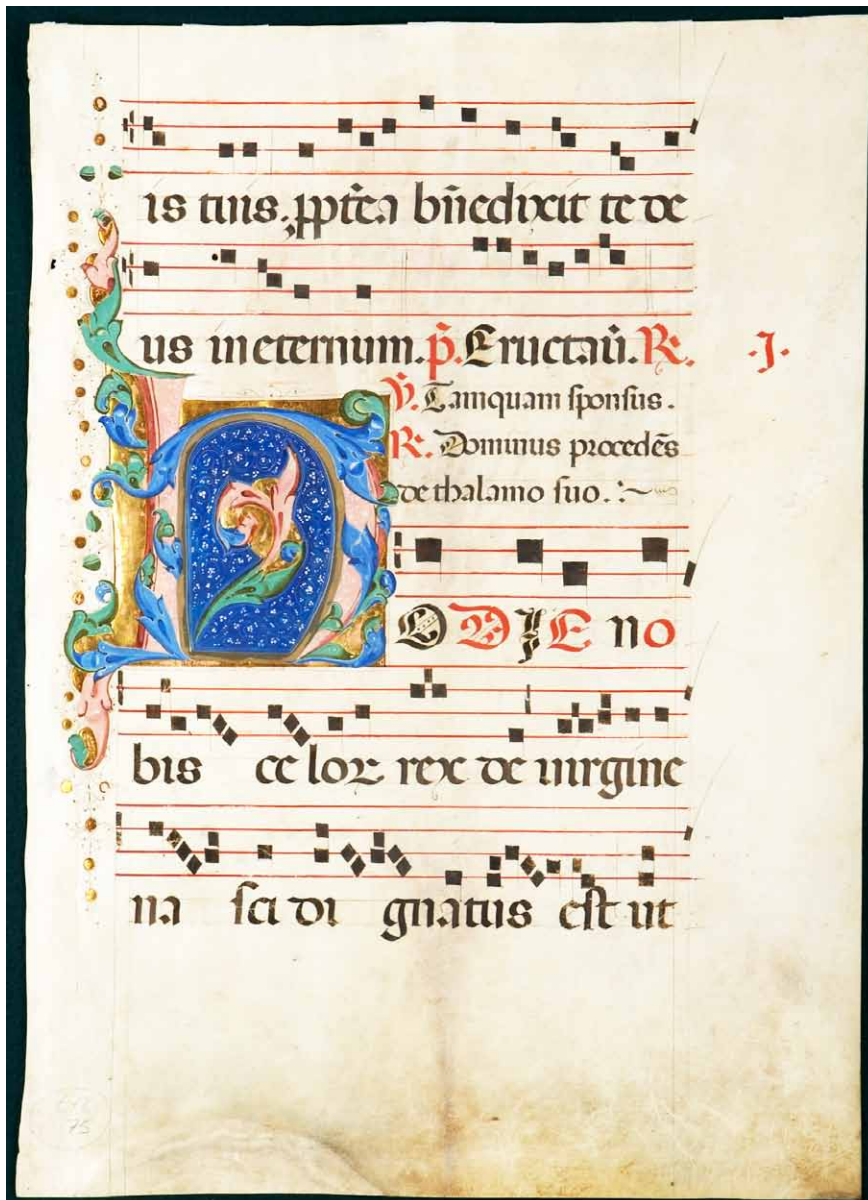 is tuis. ꝓpt̃ea bñedixit te de
us in eternum. p̃. Eructaũ. R. .I.
V̓. Tamquam sponsus.
R. Dominus procedẽs
de thalamo suo.
HODIE no
bis celoꝝ rex de uirgine
na sci di gnatus est ut
75